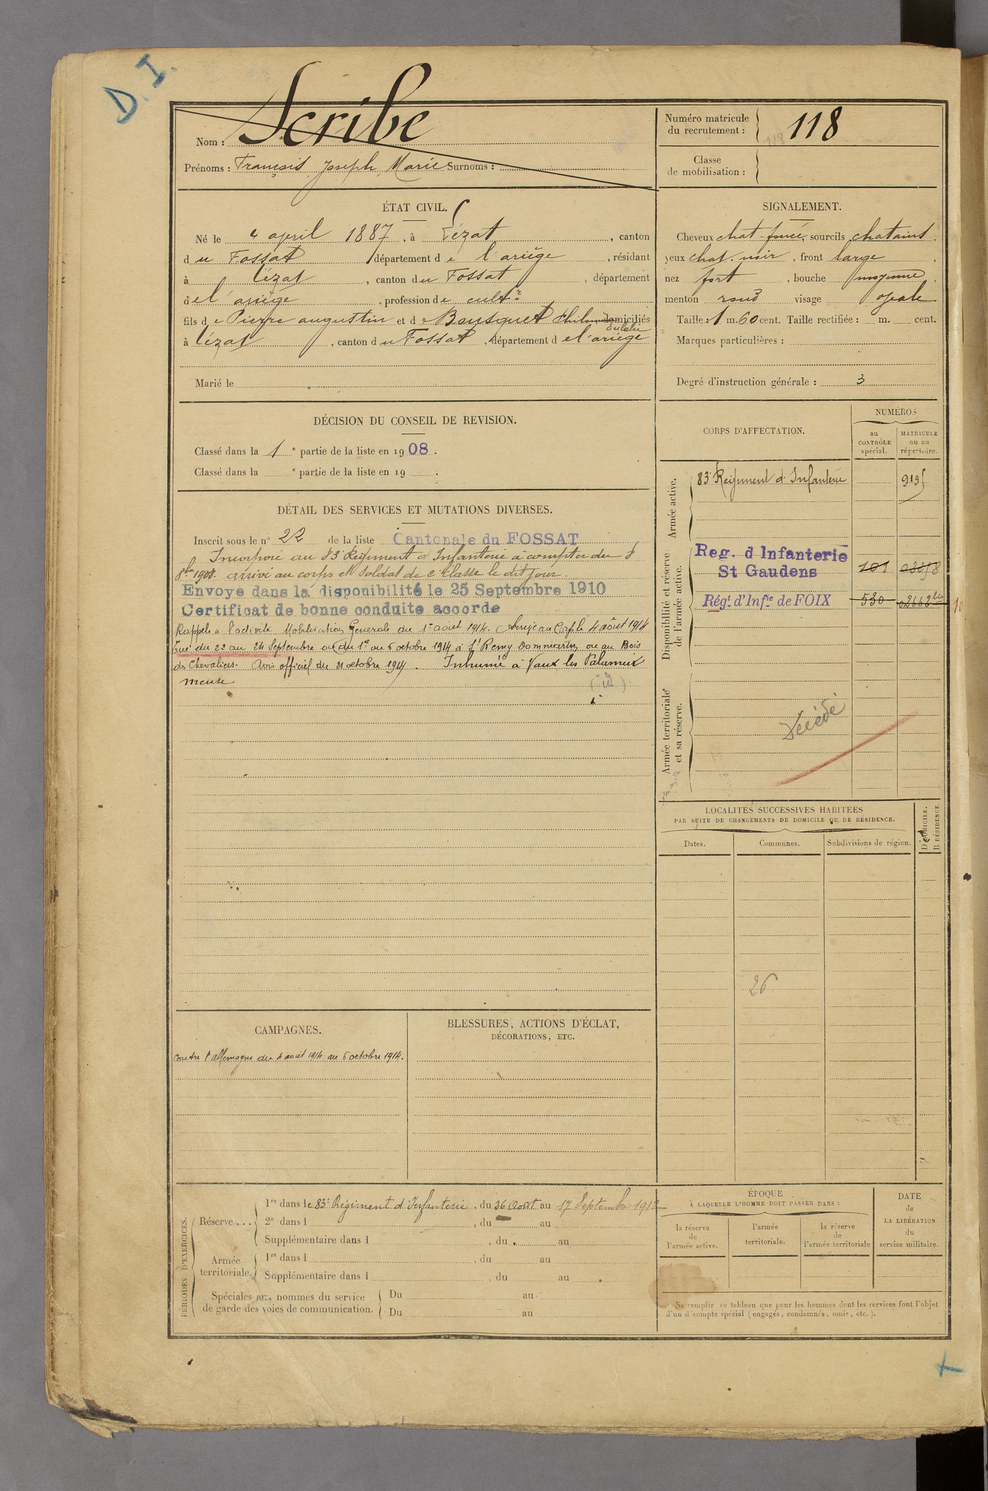 D. I.
Nom : Scribe
Prénoms : François Joseph Marie Surnoms :
Numéro matricule du recrutement : 118
Classe de mobilisation :
ÉTAT CIVIL.
Né le 4 april 1887, à Lézat, canton
du Fossat, département de l'ariège, résidant
à Lézat, canton du Fossat, département
de l'ariège, profession de cultr
fils de Pierre augustin et de Bousquet domiciliés
à Lézat, canton du Fossat, département de l'ariège
Marié le
SIGNALEMENT.
Cheveux chat-foncé, sourcils chatains,
yeux chat. noir, front large,
nez fort, bouche moyenne,
menton rond visage ovale
Taille : 1 m. 60 cent. Taille rectifiée : m. cent.
Marques particulières :
Degré d'instruction générale : 3
DÉCISION DU CONSEIL DE REVISION.
Classé dans la 1e partie de la liste en 1908.
Classé dans la e partie de la liste en 19 .
DÉTAIL DES SERVICES ET MUTATIONS DIVERSES.
Inscrit sous le n° 22 de la liste Cantonale du FOSSAT
Incorporé au 83e Régiment d'Infanterie à compter du 8
8bre 1908. arrivé au corps et soldat de 2e classe le dit jour.
Envoye dans la disponibilité le 25 Septembre 1910
Certificat de bonne conduite accorde
Rappelé à l'activité Mobilisation Générale du 1er août 1914. Arrivé au Corps le 4 août 1914
Tué du 22 au 24 Septembre ou du 1er au 6 octobre 1914 à St Remy Dommartin ou au Bois
des Chevaliers. Avis officiel du 21 octobre 1914. Inhumé à Vaux les Palameix
Meuse
CORPS D'AFFECTATION.
NUMÉROS
au CONTRÔLE spécial.
MATRICULE ou au répertoire.
Armée active.
83e Régiment d'Infanterie
Disponibilité et réserve de l'armée active.
Reg. d Infanterie
St Gaudens
101
Régt. d'Infie de FOIX 530
Armée territoriale et sa réserve.
Décédé
LOCALITÉS SUCCESSIVES HABITÉES
PAR SUITE DE CHANGEMENTS DE DOMICILE OU DE RÉSIDENCE.
Dates. Communes. Subdivisions de région. D DOMICILE. R RÉSIDENCE
26
CAMPAGNES.
contre l'allemagne du 4 août 1914 au 6 octobre 1914.
BLESSURES, ACTIONS D'ÉCLAT,
DÉCORATIONS, ETC.
PÉRIODES D'EXERCICES.
Réserve... 1re dans le 83e Régiment d'Infanterie, du 26 Août au 17 Septembre 1912
2e dans l , du au
Supplémentaire dans l , du au
Armée territoriale. 1re dans l , du au
Supplémentaire dans l , du au
Spéciales aux hommes du service de garde des voies de communication. Du au
Du au
ÉPOQUE
À LAQUELLE L'HOMME DOIT PASSER DANS :
la réserve de l'armée active.
l'armée territoriale.
la réserve de l'armée territoriale
DATE de LA LIBÉRATION du service militaire.
Ne remplir ce tableau que pour les hommes dont les services font l'objet
d'un décompte spécial (engagés, condamnés, omis, etc.).